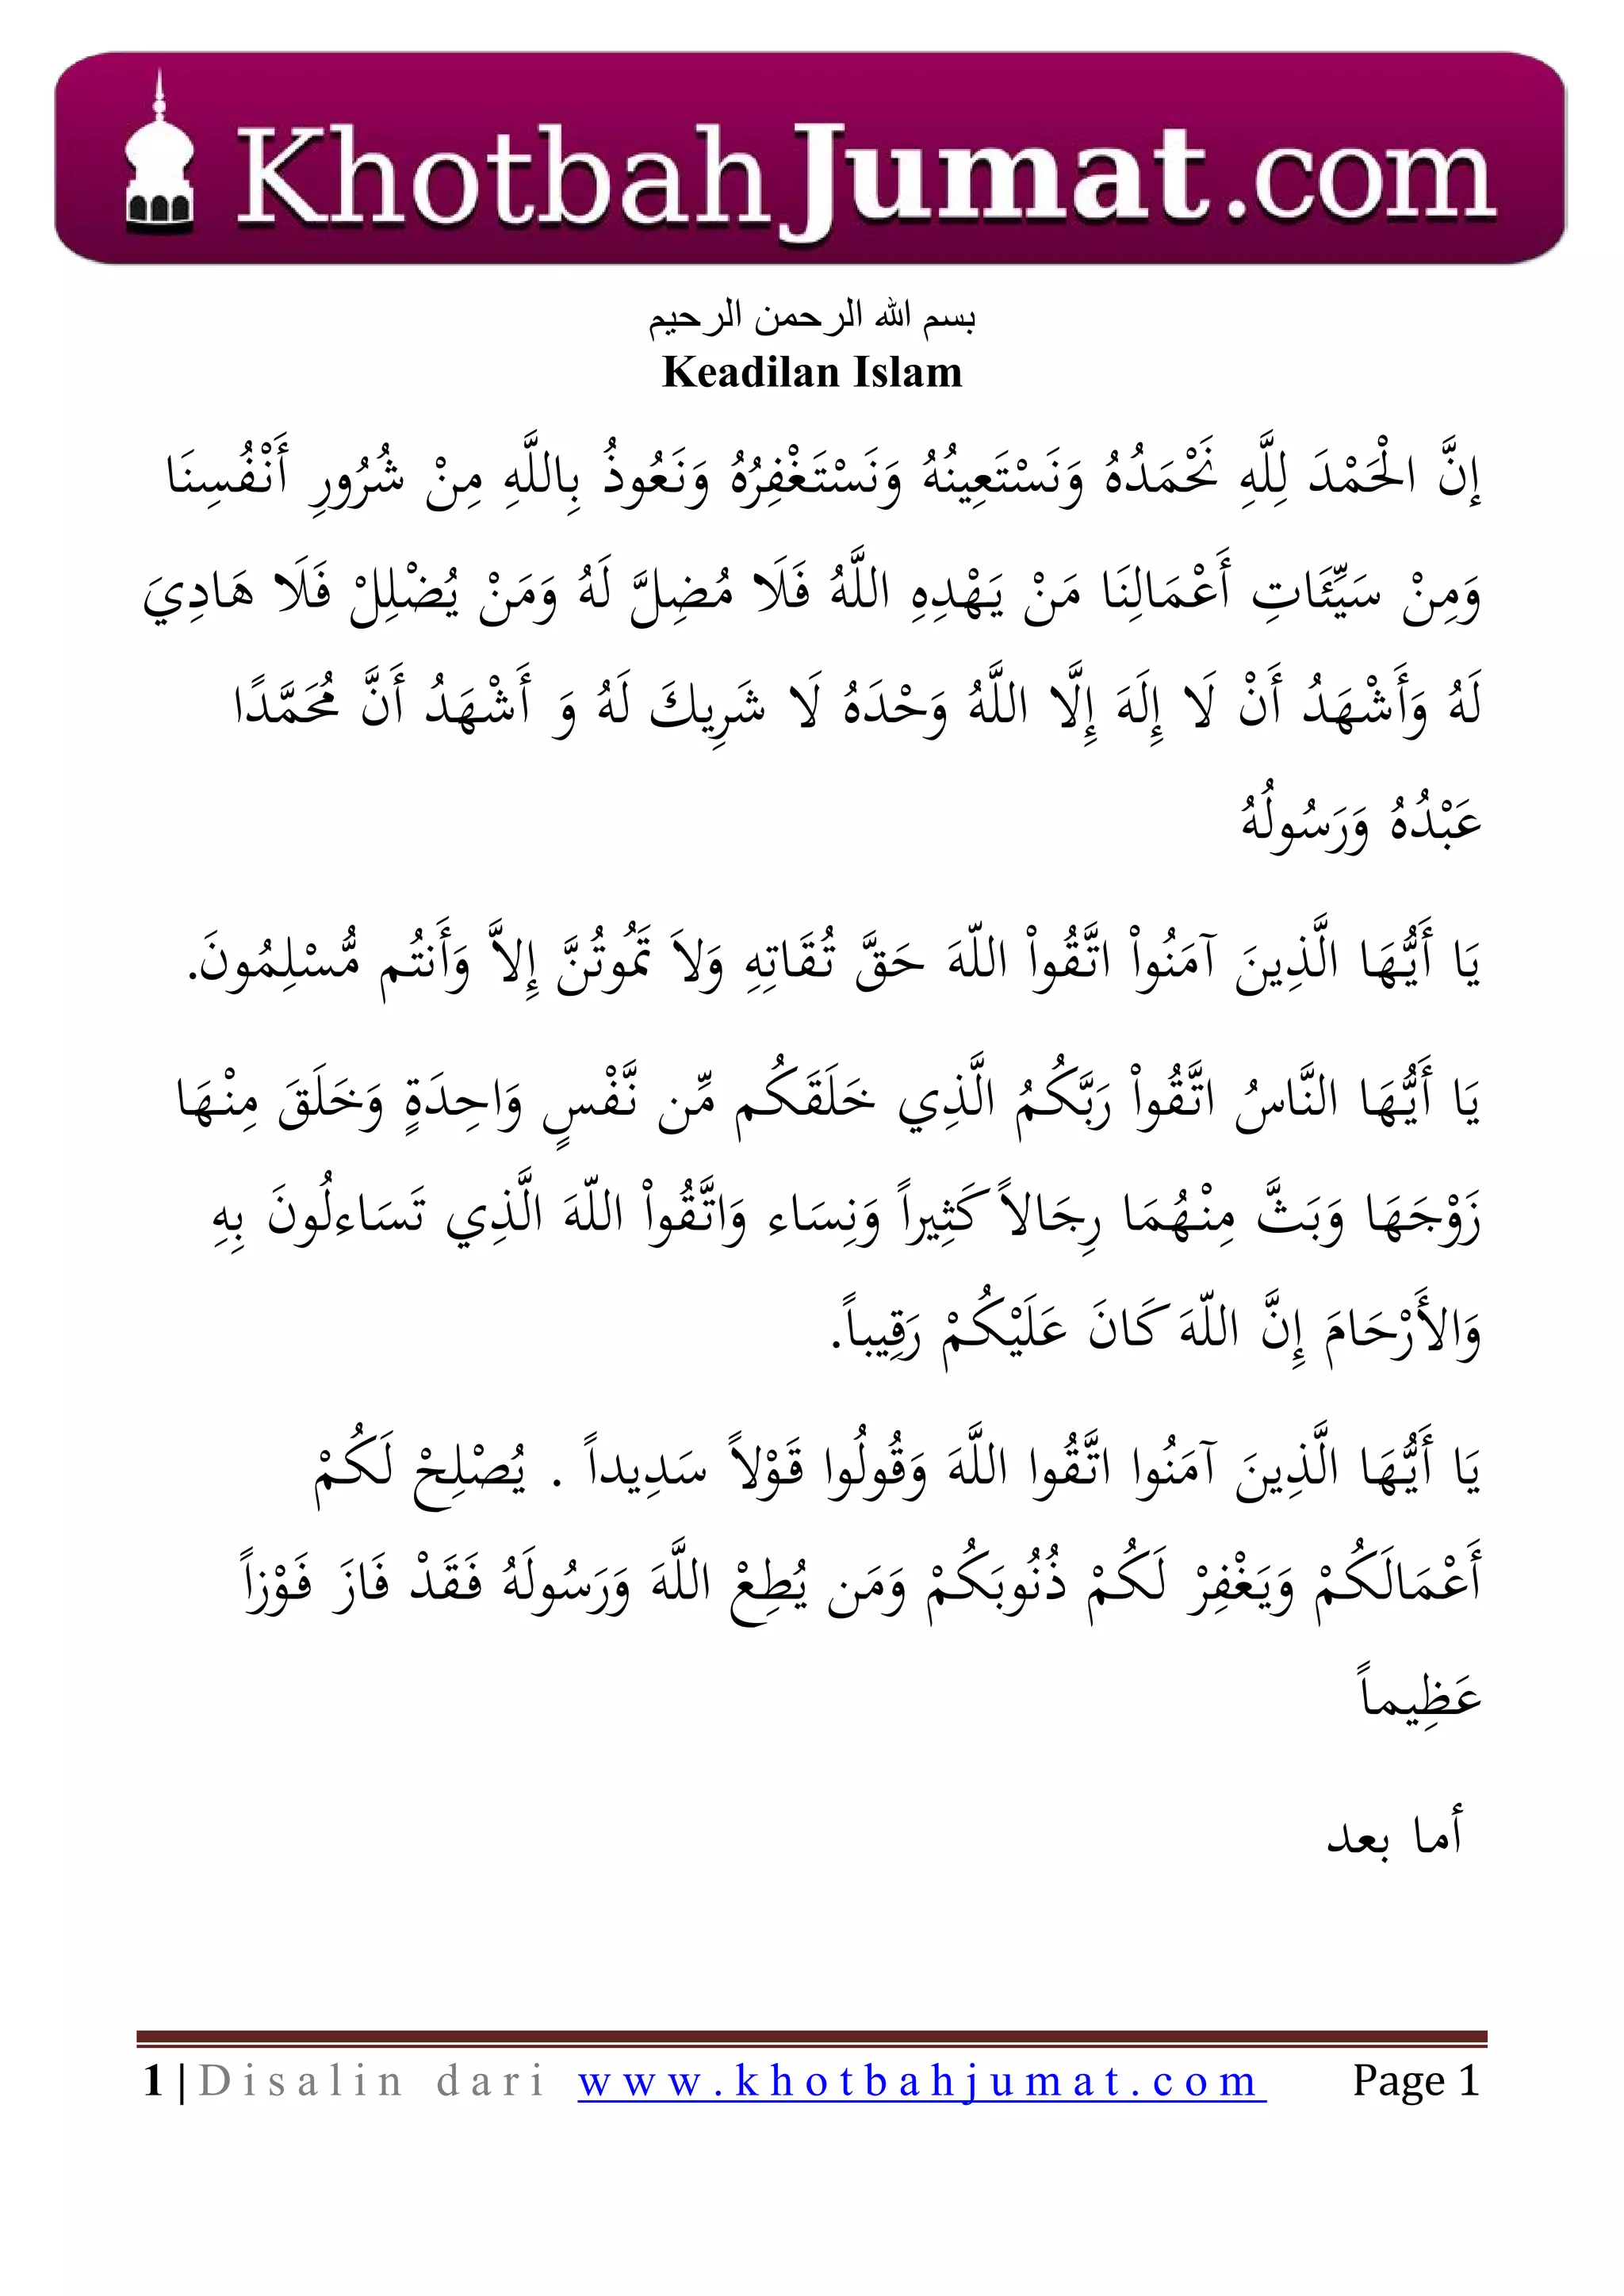 KhotbahJumat.com
بسم الله الرحمن الرحيم
Keadilan Islam
إنَّ الْحَمْدَ لِلَّهِ نَحْمَدُهُ وَنَسْتَعِينُهُ وَنَسْتَغْفِرُهُ وَنَعُوذُ بِاللَّهِ مِنْ شُرُورِ أَنْفُسِنَا
وَمِنْ سَيِّئَاتِ أَعْمَالِنَا مَنْ يَهْدِهِ اللَّهُ فَلَا مُضِلَّ لَهُ وَمَنْ يُضْلِلْ فَلَا هَادِيَ
لَهُ وَأَشْهَدُ أَنْ لَا إِلَهَ إِلَّا اللَّهُ وَحْدَهُ لَا شَرِيكَ لَهُ وَ أَشْهَدُ أَنَّ مُحَمَّدًا
عَبْدُهُ وَرَسُولُهُ
يَا أَيُّهَا الَّذِينَ آمَنُواْ اتَّقُواْ اللّهَ حَقَّ تُقَاتِهِ وَلاَ تَمُوتُنَّ إِلاَّ وَأَنتُم مُّسْلِمُونَ.
يَا أَيُّهَا النَّاسُ اتَّقُواْ رَبَّكُمُ الَّذِي خَلَقَكُم مِّن نَّفْسٍ وَاحِدَةٍ وَخَلَقَ مِنْهَا
زَوْجَهَا وَبَثَّ مِنْهُمَا رِجَالاً كَثِيراً وَنِسَاء وَاتَّقُواْ اللّهَ الَّذِي تَسَاءلُونَ بِهِ
وَالأَرْحَامَ إِنَّ اللّهَ كَانَ عَلَيْكُمْ رَقِيباً.
يَا أَيُّهَا الَّذِينَ آمَنُوا اتَّقُوا اللَّهَ وَقُولُوا قَوْلاً سَدِيداً . يُصْلِحْ لَكُمْ
أَعْمَالَكُمْ وَيَغْفِرْ لَكُمْ ذُنُوبَكُمْ وَمَن يُطِعْ اللَّهَ وَرَسُولَهُ فَقَدْ فَازَ فَوْزاً
عَظِيماً
أما بعد
1 | Disalin dari www.khotbahjumat.com Page 1